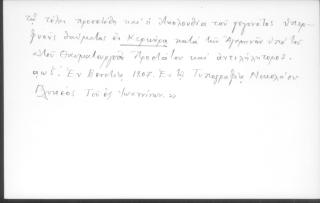 τῷ τέλει προσετέθη καὶ ἡ Ἀκολουθία τοῦ γεγονότος ὑπερ-
φυοῦς θαύματος ἐν Κερκύρᾳ κατὰ τῶν Ἀγαρηνῶν ὑπὸ τοῦ
Θαυματουργοῦ Προστάτου καὶ ἀντιλήπτορος.
Ἐν Βενετίᾳ 1805. Ἐν τῇ Τυπογραφίᾳ Νικολάου
Γλυκέος τοῦ ἐξ Ἰωαννίνων.»